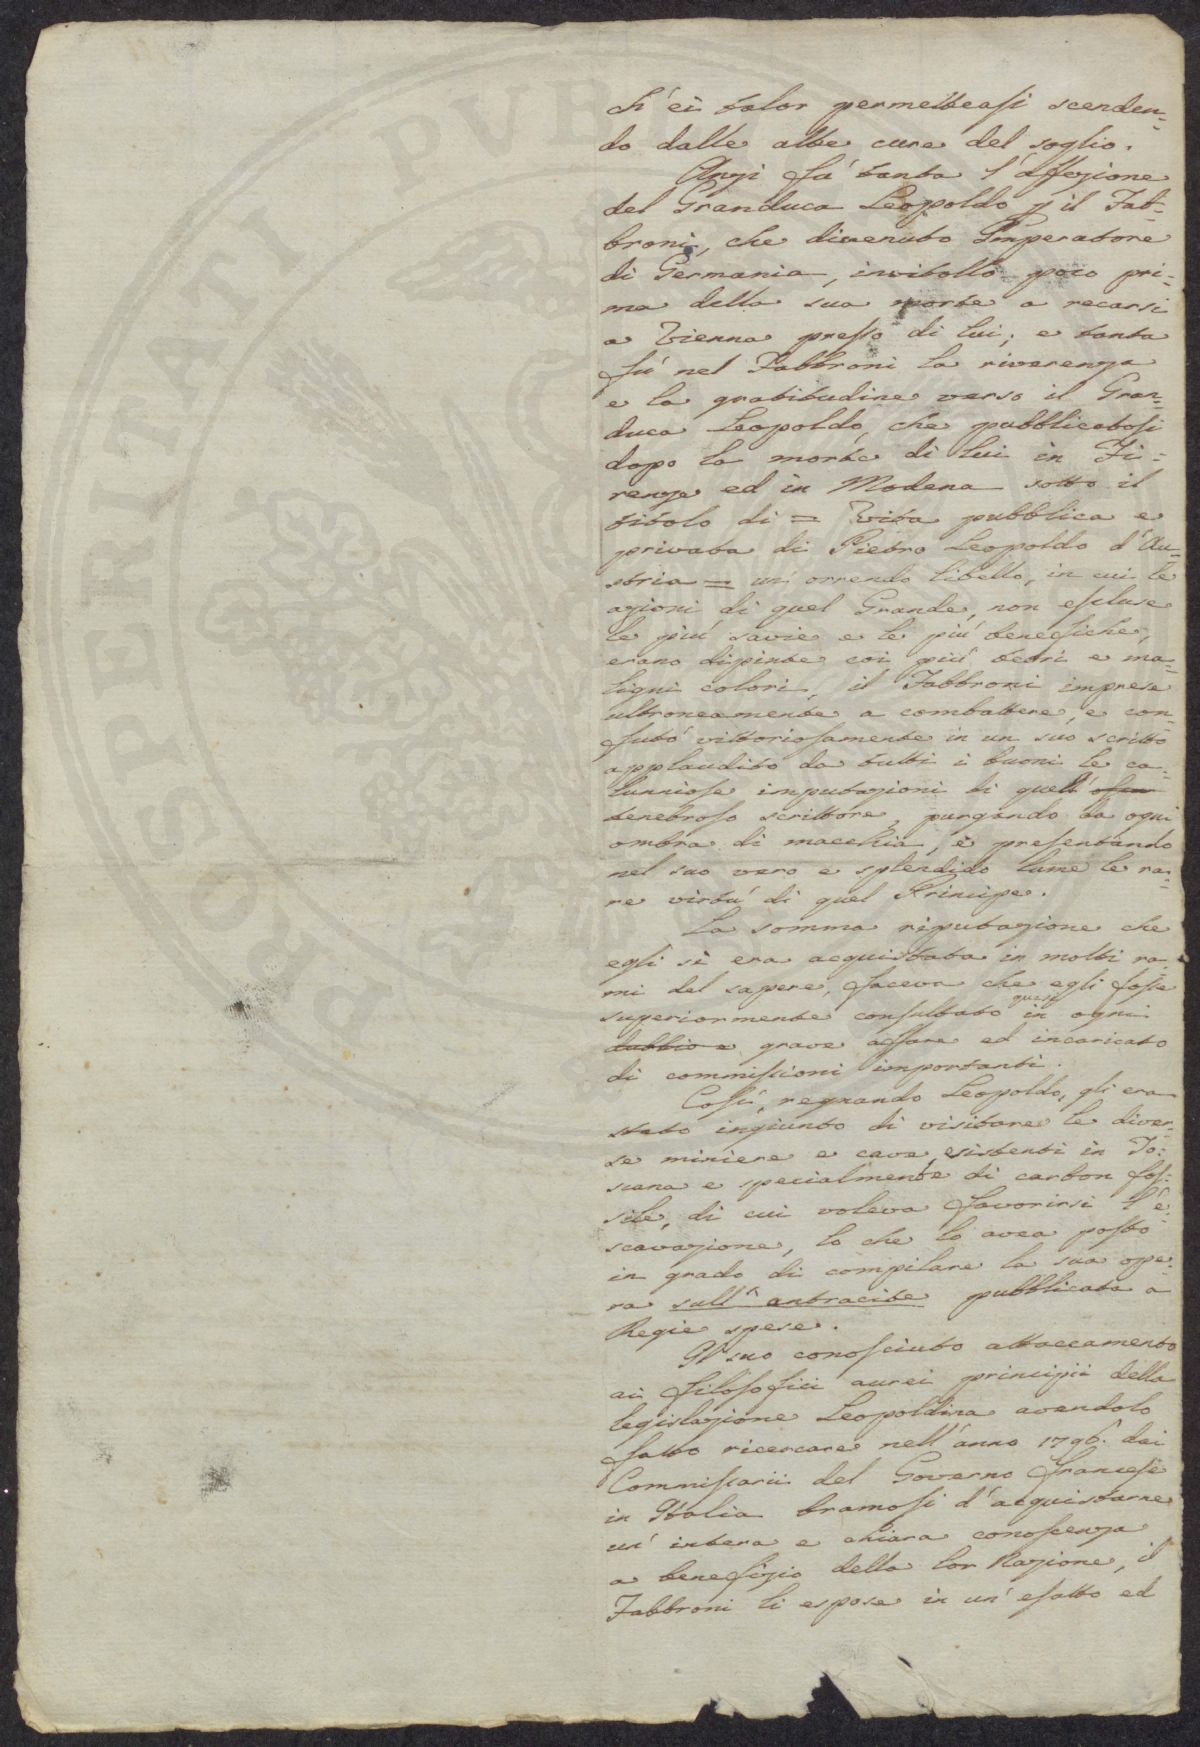 ch'ei talor permetteasi scenden-
do dalle alte cure del soglio.
Anzi fù tanta l'affezione
del Granduca Leopoldo p il Fab-
broni, che divenuto Imperatore
di Germania, invitollo poco pri-
ma della sua morte a recarsi
a Vienna presso di lui; e tanta
fù nel Fabbroni la riverenza
e la gratitudine verso il Gran-
duca Leopoldo, che pubblicatosi
dopo la morte di lui in Fi-
renze ed in Modena sotto il
titolo di = Vita pubblica e
privata di Pietro Leopoldo d'Au-
stria = un orrendo libello, in cui le
azioni di quel Grande, non escluse
le più savie e le più benefiche,
erano dipinte coi più tetri e ma-
ligni colori, il Fabbroni imprese
ultroneamente a combattere, e con-
futò vittoriosamente in un suo scritto
applaudito da tutti i buoni le ca-
lunniose imputazioni di quell'
tenebroso scrittore, purgando da ogni
ombra di macchia, e presentando
nel suo vero e splendido lume le ra-
re virtù di quel Principe.
La somma riputazione che
egli si era acquistata in molti ra-
mi del sapere, faceva che egli fosse
superiormente consultato quasi in ogni
dubbio e grave affare ed incaricato
di commissioni importanti.
Così, regnando Leopoldo, gli era
stato ingiunto di visitare le diver-
se miniere e cave esistenti in To-
scana e specialmente di carbon fos-
sile, di cui voleva favorirsi l'e-
scavazione, lo che lo avea posto
in grado di compilare la sua ope-
ra sull'antracite pubblicata a
Regie spese.
Il suo conosciuto attaccamento
ai filosofici aurei principii della
legislazione Leopoldina avendolo
fatto ricercare nell'anno 1796. dai
Commissarii del Governo francese
in Italia bramosi d'acquistarne
un' intera e chiara conoscenza
a benefizio della lor Nazione, il
Fabbroni li espose in un' esatto ed
PROSPERITATI